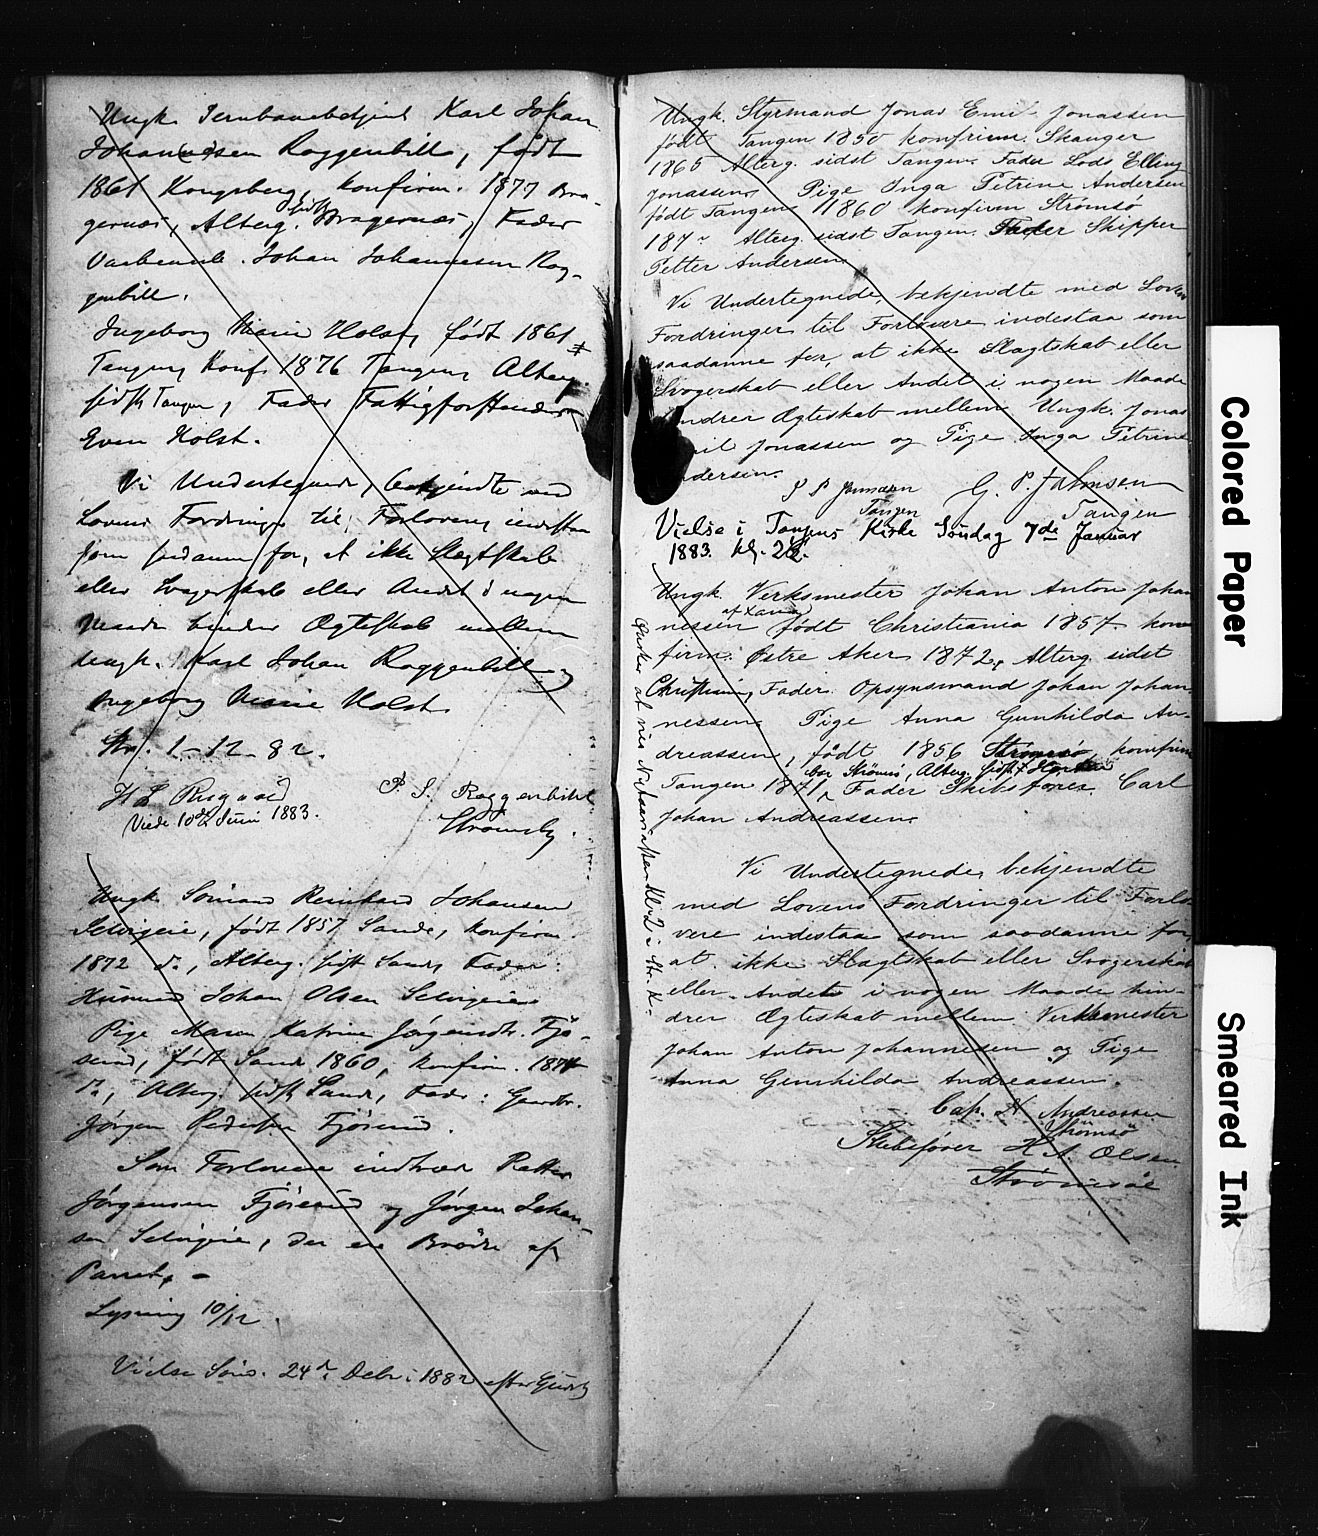 Ungk. Jernbanebetjent Karl Johan
Johannesen Roggenbill, født
1861 Kongsberg, konfirm. 1877 Bra-
gernæs, Alterg. sidst Bragernæs, Fader
Johan Johannesen Rog-
genbill.
Ingeborg Marie Holst, født 1861
Tangen, Konf. 1876 Tangen, Alterg.
sidst Tangen, Fader Fattigforstander
Even Holst.
Vi Undertegnede, bekjendte med
Lovens Fordringer til Forlovere, indestaa
som saadanne for, at ikke Slægtskab
eller Svogerskab eller Andet i nogen
Maade hindrer Ægteskab mellem
Ungk. Karl Johan Roggenbill og
Ingeborg Marie Holst.
Str. 1-12-82.
P. S. Roggenbill
Viede 10de Juni 1883.
Ungk. Sømand Reinhard Johansen
Selvigeie, født 1857 Sande, konfirm.
1872 do., Alterg. sidst Sande, Fader:
Husmand Johan Olsen Selvigeie
Pige Maren Katrine Jørgensdtr. Fjø-
serud, født Sande 1860, konfirm. 1874
do., Alterg. sidst Sande, Fader: Gaardbr.
Jørgen Pedersen Fjøserud.
Som Forlovere indtræde Petter
Jørgensen Fjøserud og Jørgen Johan-
sen Selvigeie, der ere Brødre af
Parret. -
Lysning 10/12.
Vielse Sønd. 24de Decbr. 1882 efter Gudst.
Ungk. Styrmand Jonas Emil Jonassen
født Tangen 1850 konfirm. Skanger
1865 Alterg. sidst Tangen. Fader Lods Elling
Jonassen. Pige Inga Petrine Andersen
født Tangen 1860 konfirm Strømsø
187 Alterg. sidst Tangen. Fader Skipper
Petter Andersen.
Vi Undertegnede, bekjendte med Lovens
Fordringer til Forlovere indestaa som
saadanne for, at ikke Slægtskab eller
Svogerskab eller Andet i nogen Maade
hindrer Ægteskab mellem Ungk. Jonas
Emil Jonassen og Pige Inga Petrine
Andersen.
G. P. Johnsen
Tangen Tangen
Vielse i Tangens Kirke Søndag 7de Januar
1883. kl. 2½.
Ungk. Verksmester Johan Anton Johan
nessen født Christiania 1857 kon-
firm. Østre Aker 1872, Alterg. sidst
Christiania, Fader Opsynsmand Johan Johan-
nessen. Pige Anna Gunhilda An-
dreassen, født 1856 Strømsø, konfirm
bor Strømsø, Alterg. sidst
Tangen 1871, Fader Skibsfører Carl
Johan Andreassen.
Vi Undertegnede, bekjendte
med Lovens Fordringer til Forlo-
vere indestaa som saadanne for
at ikke Slægtskab eller Svogerskab
eller Andet i nogen Maade hin-
drer Ægteskab mellem Verksmester
Johan Anton Johannesen og Pige
Anna Gunhilda Andreassen.
Cap. H Andreassen
Strømsø
Skibsfører H A. Olsen
Strømsøe
Colored Paper
Smeared Ink